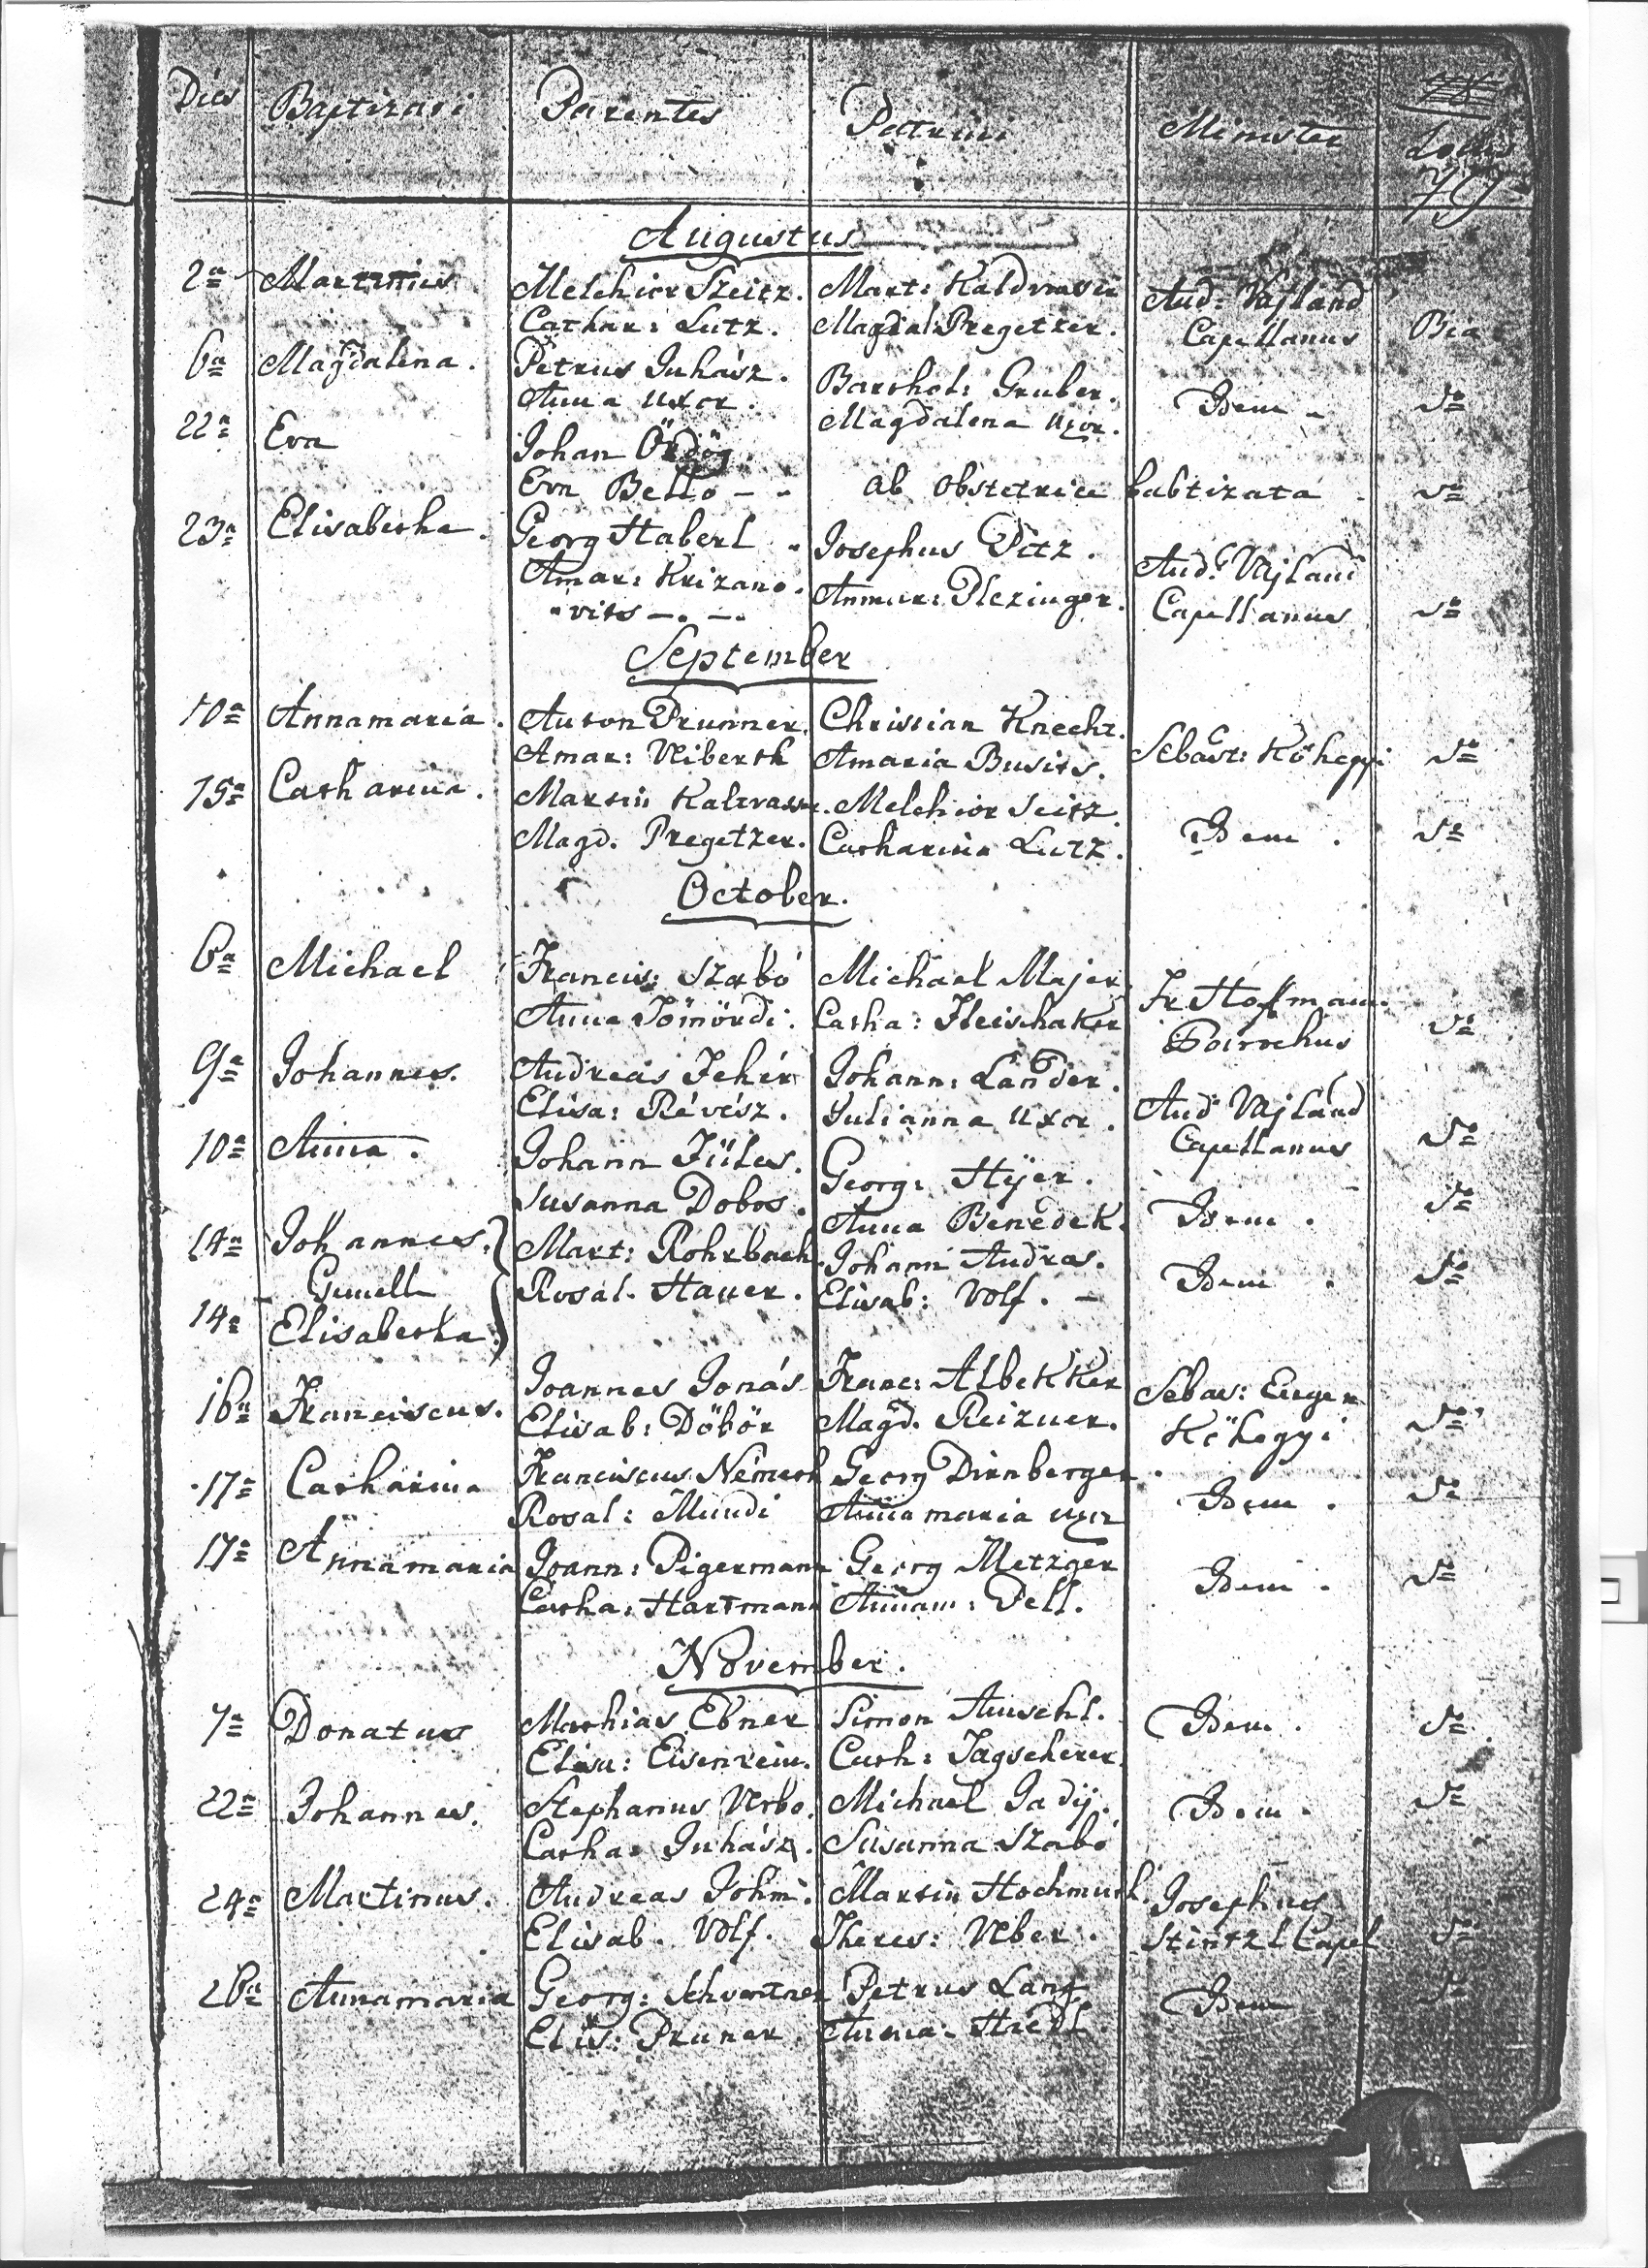 Dies Baptizati Parentes Patrini Minister Locus
79
Augustus
2a Martinus Melchior Szeitz. Mart: Kaldrovsir And: Vajland
Cathar: Lutz. Magdal: Pregetzer. Capellanus Bia
6a Magdalena. Petrus Juhász. Barthol: Gruber.
Anna uxor. Magdalena uxor. Idem - do
22a Eva Johan Ördög
Eva Bello - - ab obstetrice babtizata - do
23a Elisabetha. Georg Haberl. Josephus Pitz. And: Vajland
Amar: Krizano. Anmar: Plezinger. Capellanus do
"vits -. -.
September
10a Annamaria. Anton Prunner. Christian Knecht. Sebast: Kőhegyi do
Amar: Viberth Amaria Busits.
15a Catharina. Martin Melchior Seitz.
Magd. Pregetzer. Catharina Lutz. Idem. do
October.
6a Michael Francis: Szabó Michael Majer. Fr Hoffmann.
Anna Tömördi. Catha: Fleischaker Parochus do
9a Johannes. Andreas Fehér Johann: Lander. And: Vajland
Elisa: Révész. Julianna uxor. Capellanus do
10a Anna. Johann Füles. Georg: Hijer.
Susanna Dobos. Anna Benedek. Idem. do
14a Johannes. Mart: Rohrbach. Johann Andras.
Gemelli Rosal. Hauer. Elisab: Volf. - Idem. do
14a Elisabetha.
16a Franciscus. Joannes Jonás Franc: Albekker Sebas: Eugen
Elisab: Döbör Magd. Reizner. Kőhegyi do
17a Catharina Franciscus Németh Georg Dirnberger.
Rosal: Mundi Annamaria uxor Idem. do
17a Annamaria Joann: Pigermann Georg Metzger
Catha: Hartmann Annam: Pell. Idem. do
November.
7a Donatus Mathias Ebner Simon Anschl. Idem. do
Elisa: Eisenrein. Cath: Jagscherer.
22a Johannes. Stephanus Urbo. Michael Jadij. Idem. do
Catha: Juhász. Susanna Szabó
24a Martinus. Andreas Böhm. Martin Hochmuth. Josephus
Elisab. Volf. Theres: Veber. Stintzl Capel do
26a Annamaria Georg: Schventner Petrus Lang Idem do
Elis: Pruner. Anna: Hredl